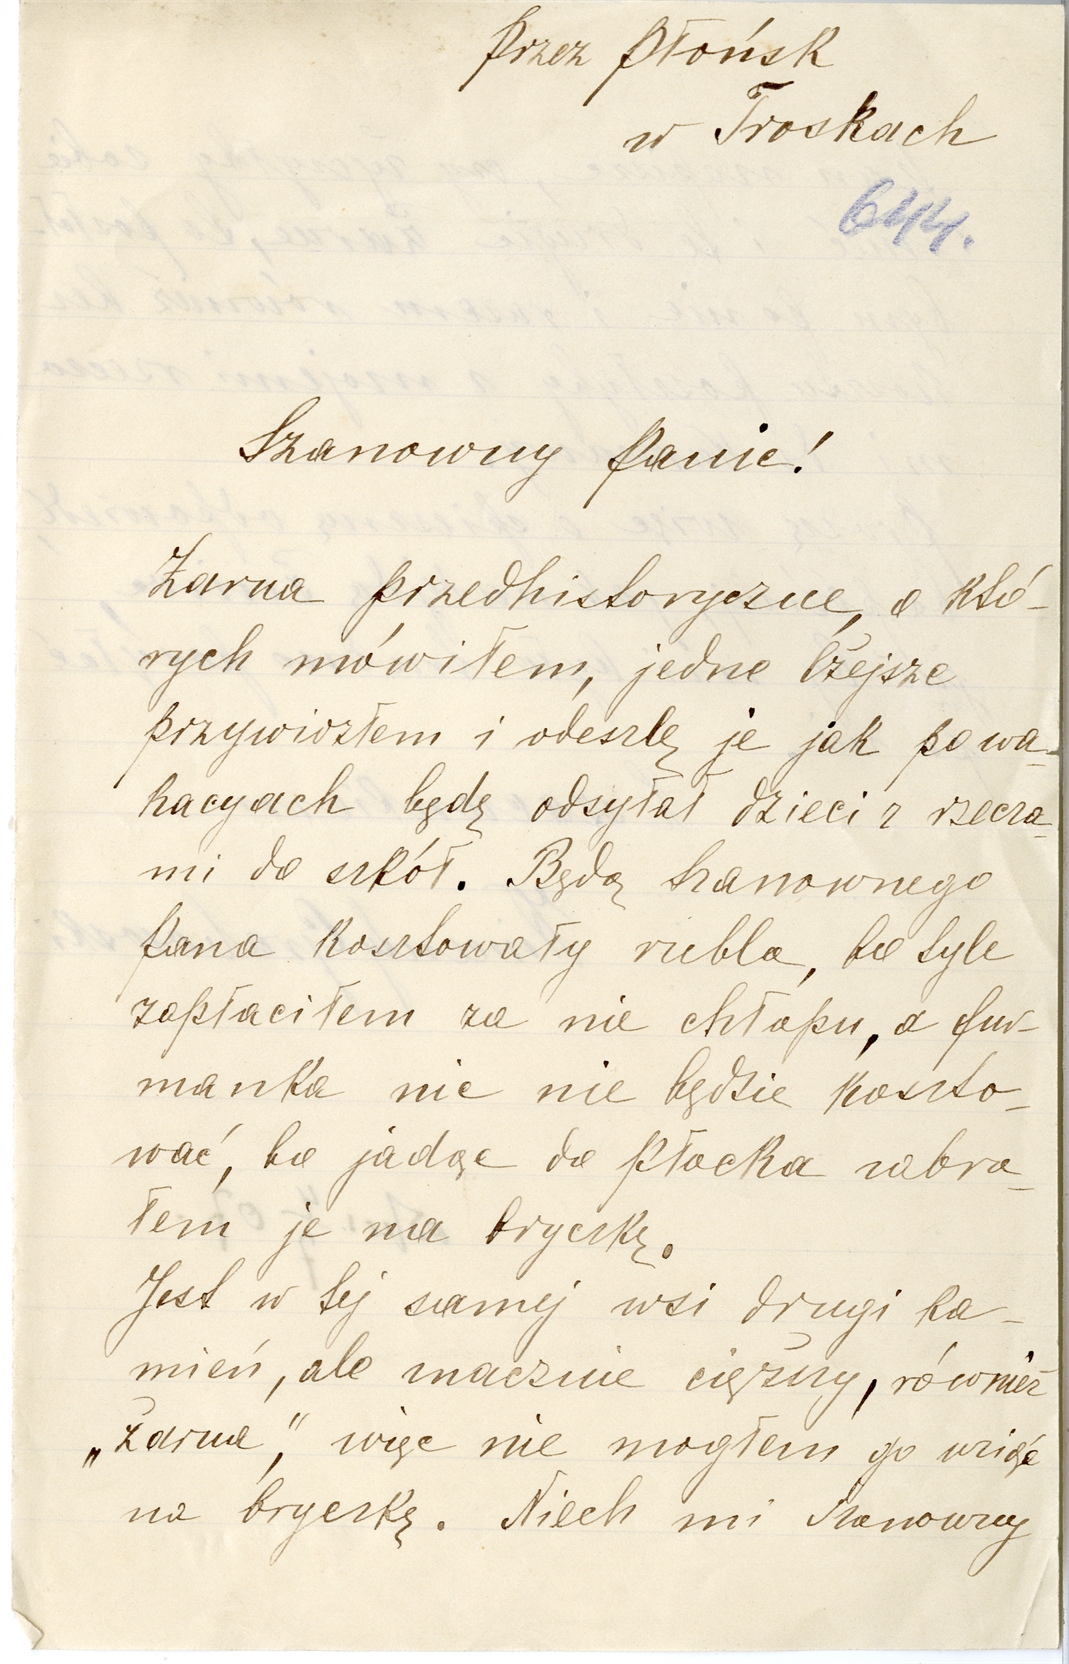 Przez Płońsk
w Troskach
644.
Szanowny Panie!
Żarna przedhistoryczne, o któ-
rych mówiłem, jedne lżejsze
przywiozłem i odeszlę je jak po wa-
kacyach będę odsyłał dzieci z rzecza-
mi do szkół. Będą Szanownego
Pana kosztowały rubla, bo tyle
zapłaciłem za nie chłopu, a fur-
manka nic nie będzie koszto-
wać, bo jadąc do Płocka zabra-
łem je na bryczkę.
Jest w tej samej wsi drugi ka-
mień, ale znacznie cięższy, również
„żarna", więc nie mogłem go wziąć
na bryczkę. Niech mi Szanowny